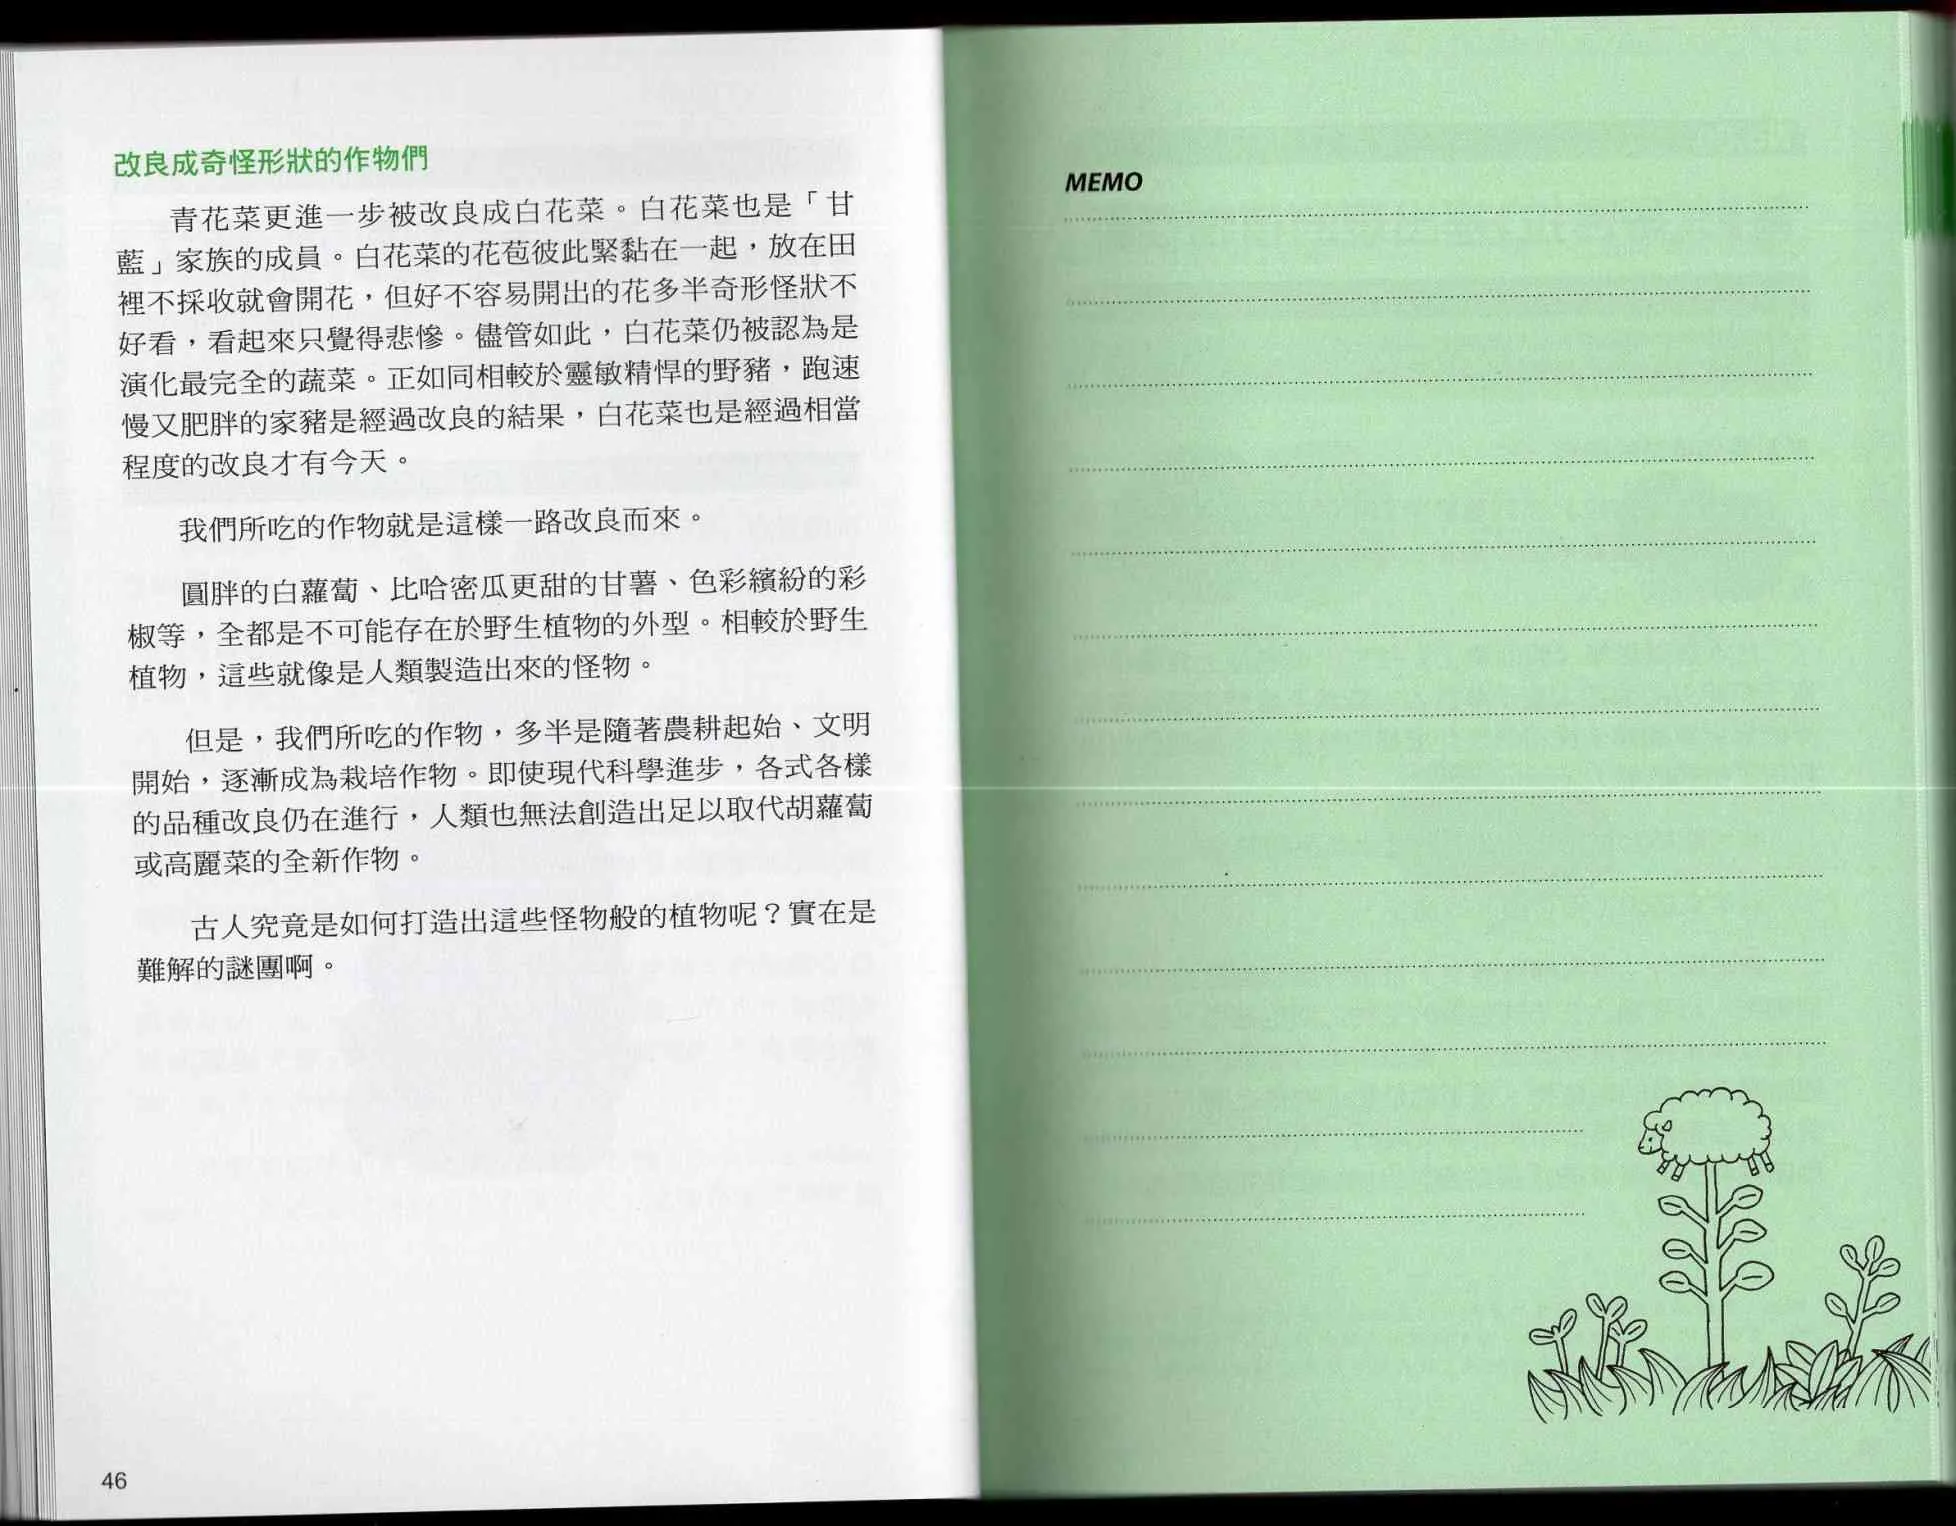 改良成奇怪形狀的作物們
青花菜更進一步被改良成白花菜。白花菜也是「甘
藍」家族的成員。白花菜的花苞彼此緊黏在一起，放在田
裡不採收就會開花，但好不容易開出的花多半奇形怪狀不
好看，看起來只覺得悲慘。儘管如此，白花菜仍被認為是
演化最完全的蔬菜。正如同相較於靈敏精悍的野豬，跑速
慢又肥胖的家豬是經過改良的結果，白花菜也是經過相當
程度的改良才有今天。
我們所吃的作物就是這樣一路改良而來。
圓胖的白蘿蔔、比哈密瓜更甜的甘薯、色彩繽紛的彩
椒等，全都是不可能存在於野生植物的外型。相較於野生
植物，這些就像是人類製造出來的怪物。
但是，我們所吃的作物，多半是隨著農耕起始、文明
開始，逐漸成為栽培作物。即使現代科學進步，各式各樣
的品種改良仍在進行，人類也無法創造出足以取代胡蘿蔔
或高麗菜的全新作物。
古人究竟是如何打造出這些怪物般的植物呢？實在是
難解的謎團啊。
46
MEMO